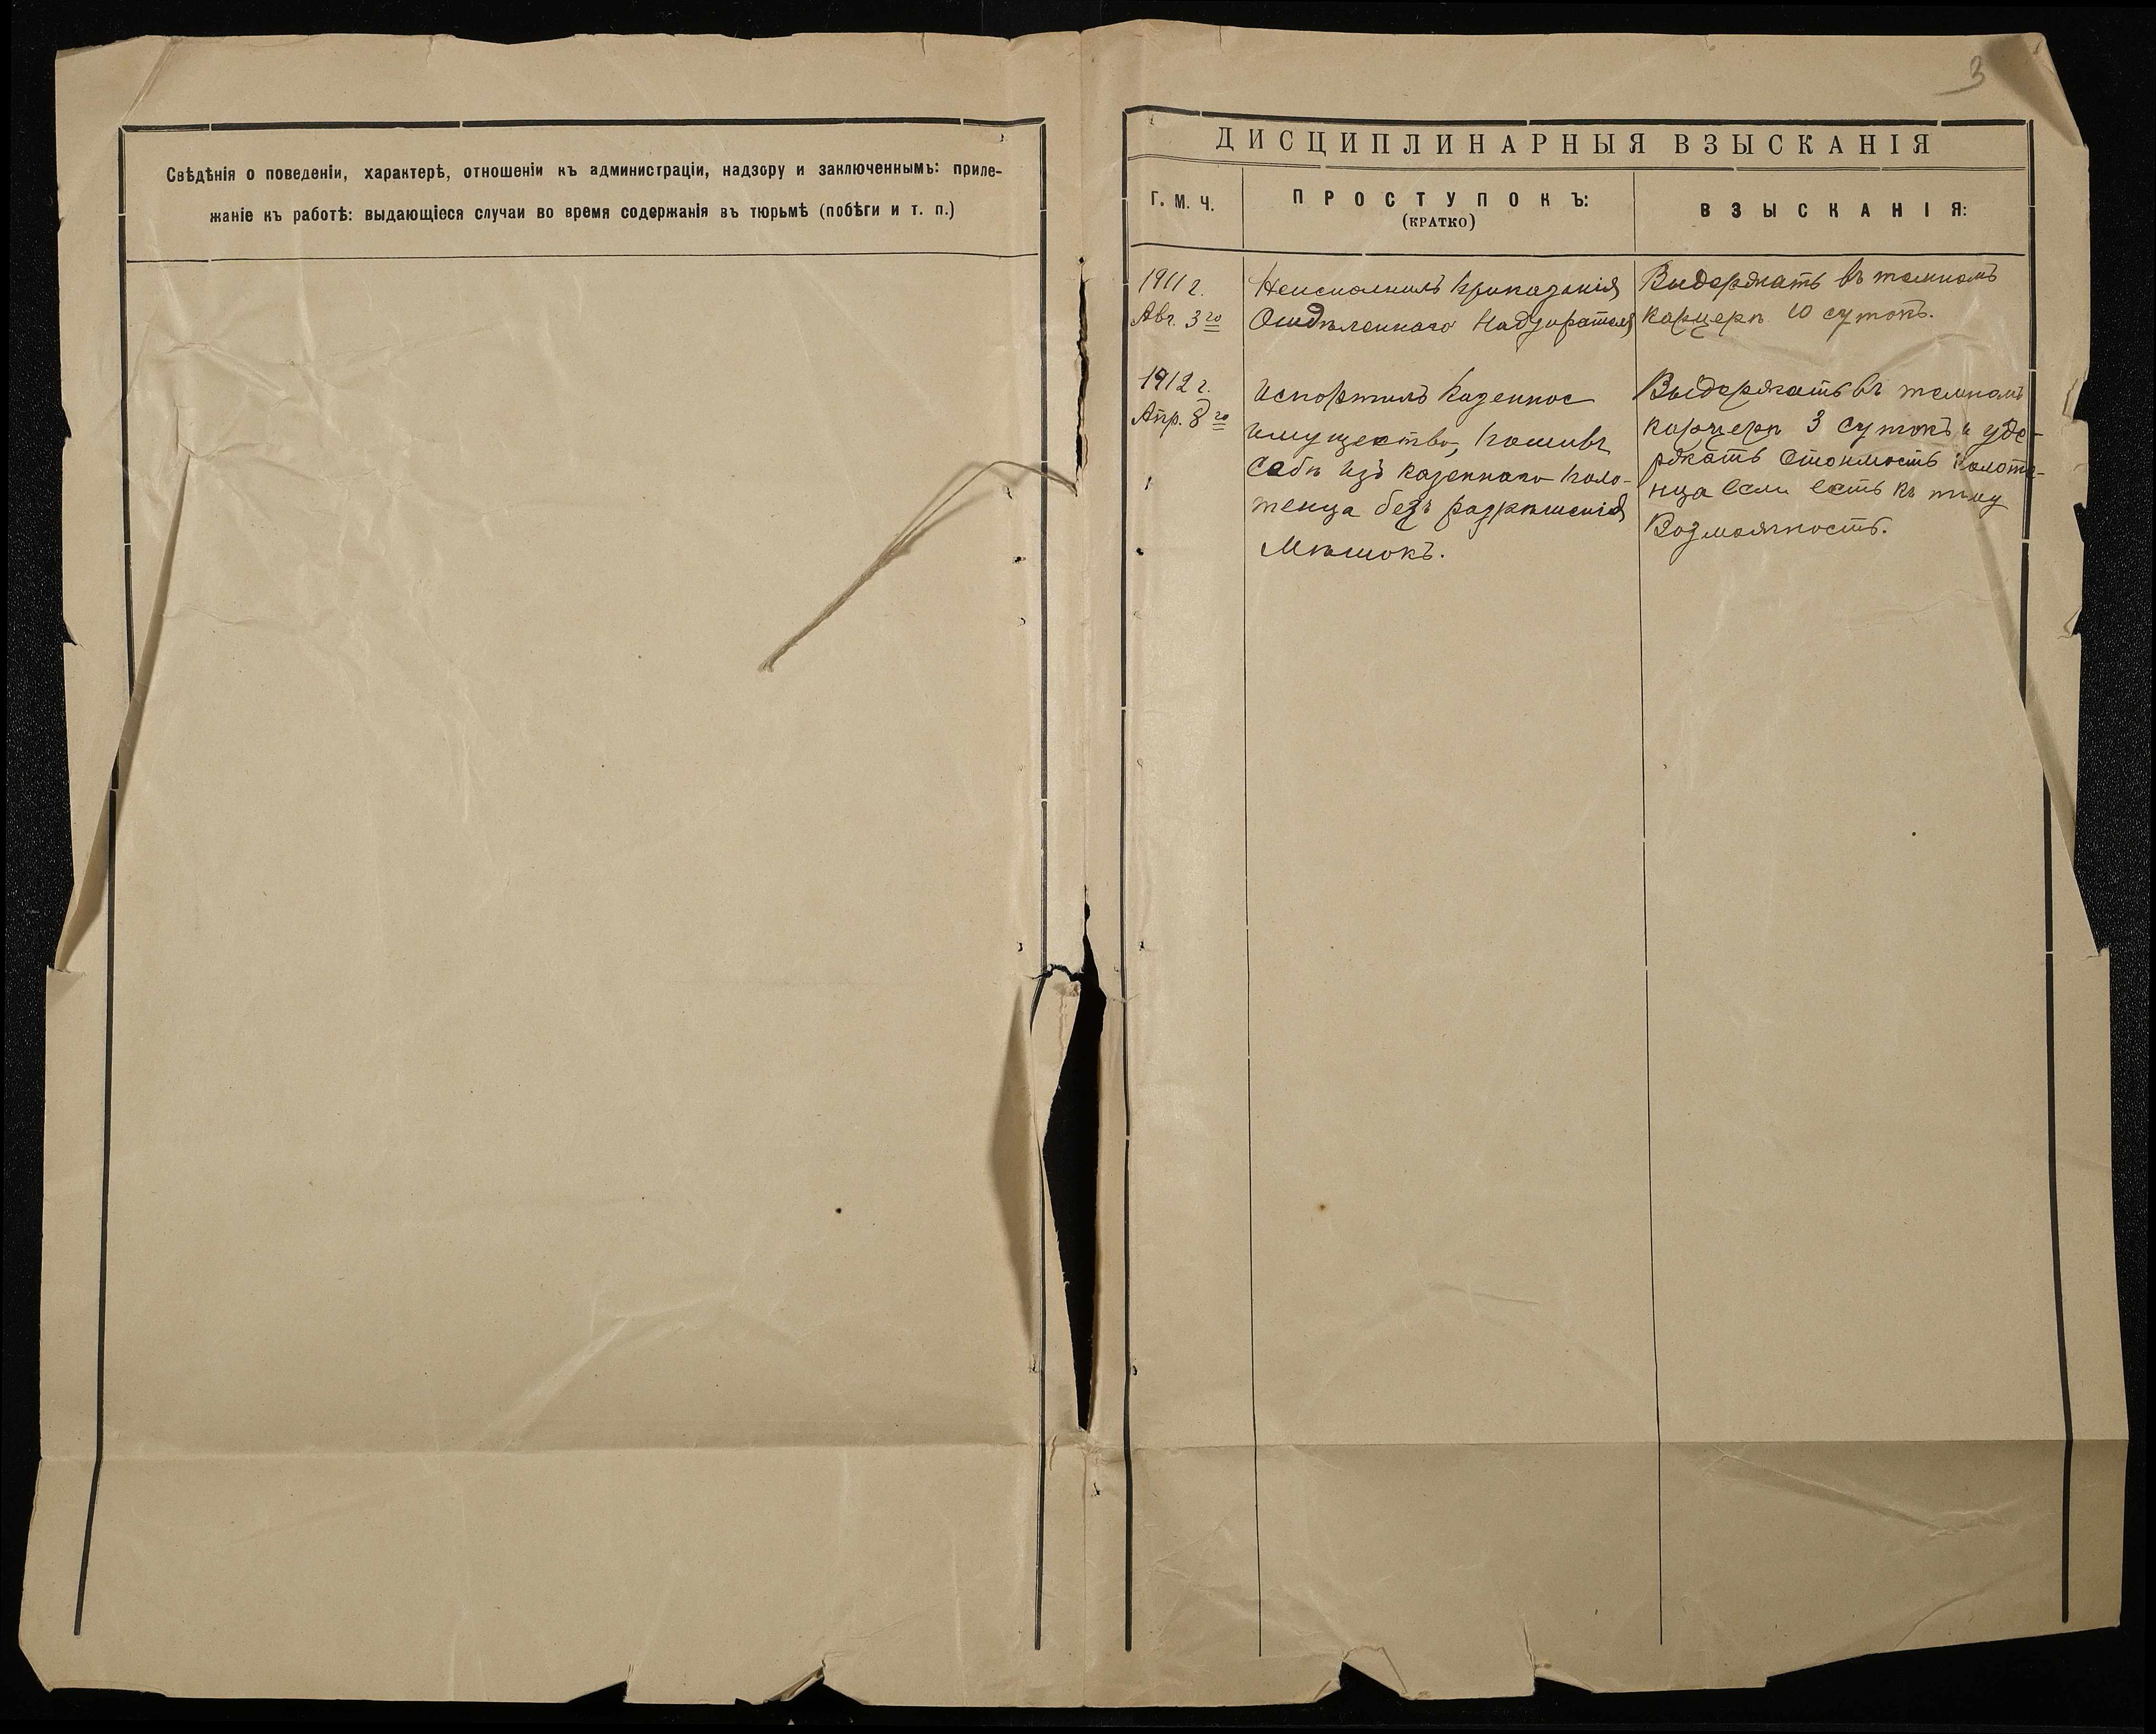 3
Свѣдѣнія о поведеніи, характерѣ, отношеніи къ администраціи, надзору и заключеннымъ: приле-
жаніе къ работѣ: выдающіеся случаи во время содержанія въ тюрьмѣ (побѣги и т. п.)
ДИСЦИПЛИНАРНЫЯ ВЗЫСКАНІЯ
Г. М. Ч.
ПРОСТУПОКЪ:
(КРАТКО)
ВЗЫСКАНІЯ:
1911 г.
Авг. 3го
Неисполнилъ приказанія
Отдѣленнаго Надзирателя
Выдержать въ темномъ
карцерѣ 10 сутокъ.
1912 г.
Апр. 8го
Испортилъ казенное
имущество, пошивъ
себѣ изъ казеннаго поло-
тенца безъ разрѣшенія
мѣшокъ.
Выдержать въ темномъ
карцерѣ 3 сутокъ и уде-
ржать стоимость полоте-
нца если есть къ тому
возможность.